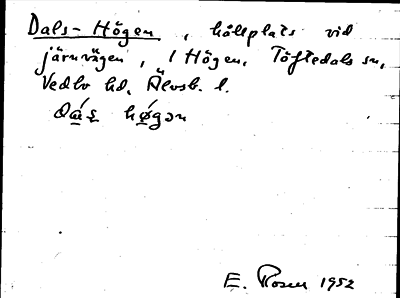 Dals-Högen, hållplats vid
järnvägen, 1 Högen, Töftedals sn,
Vedbo hd, Älvsb. l.
dás hǿgən
E. Rosen 1952